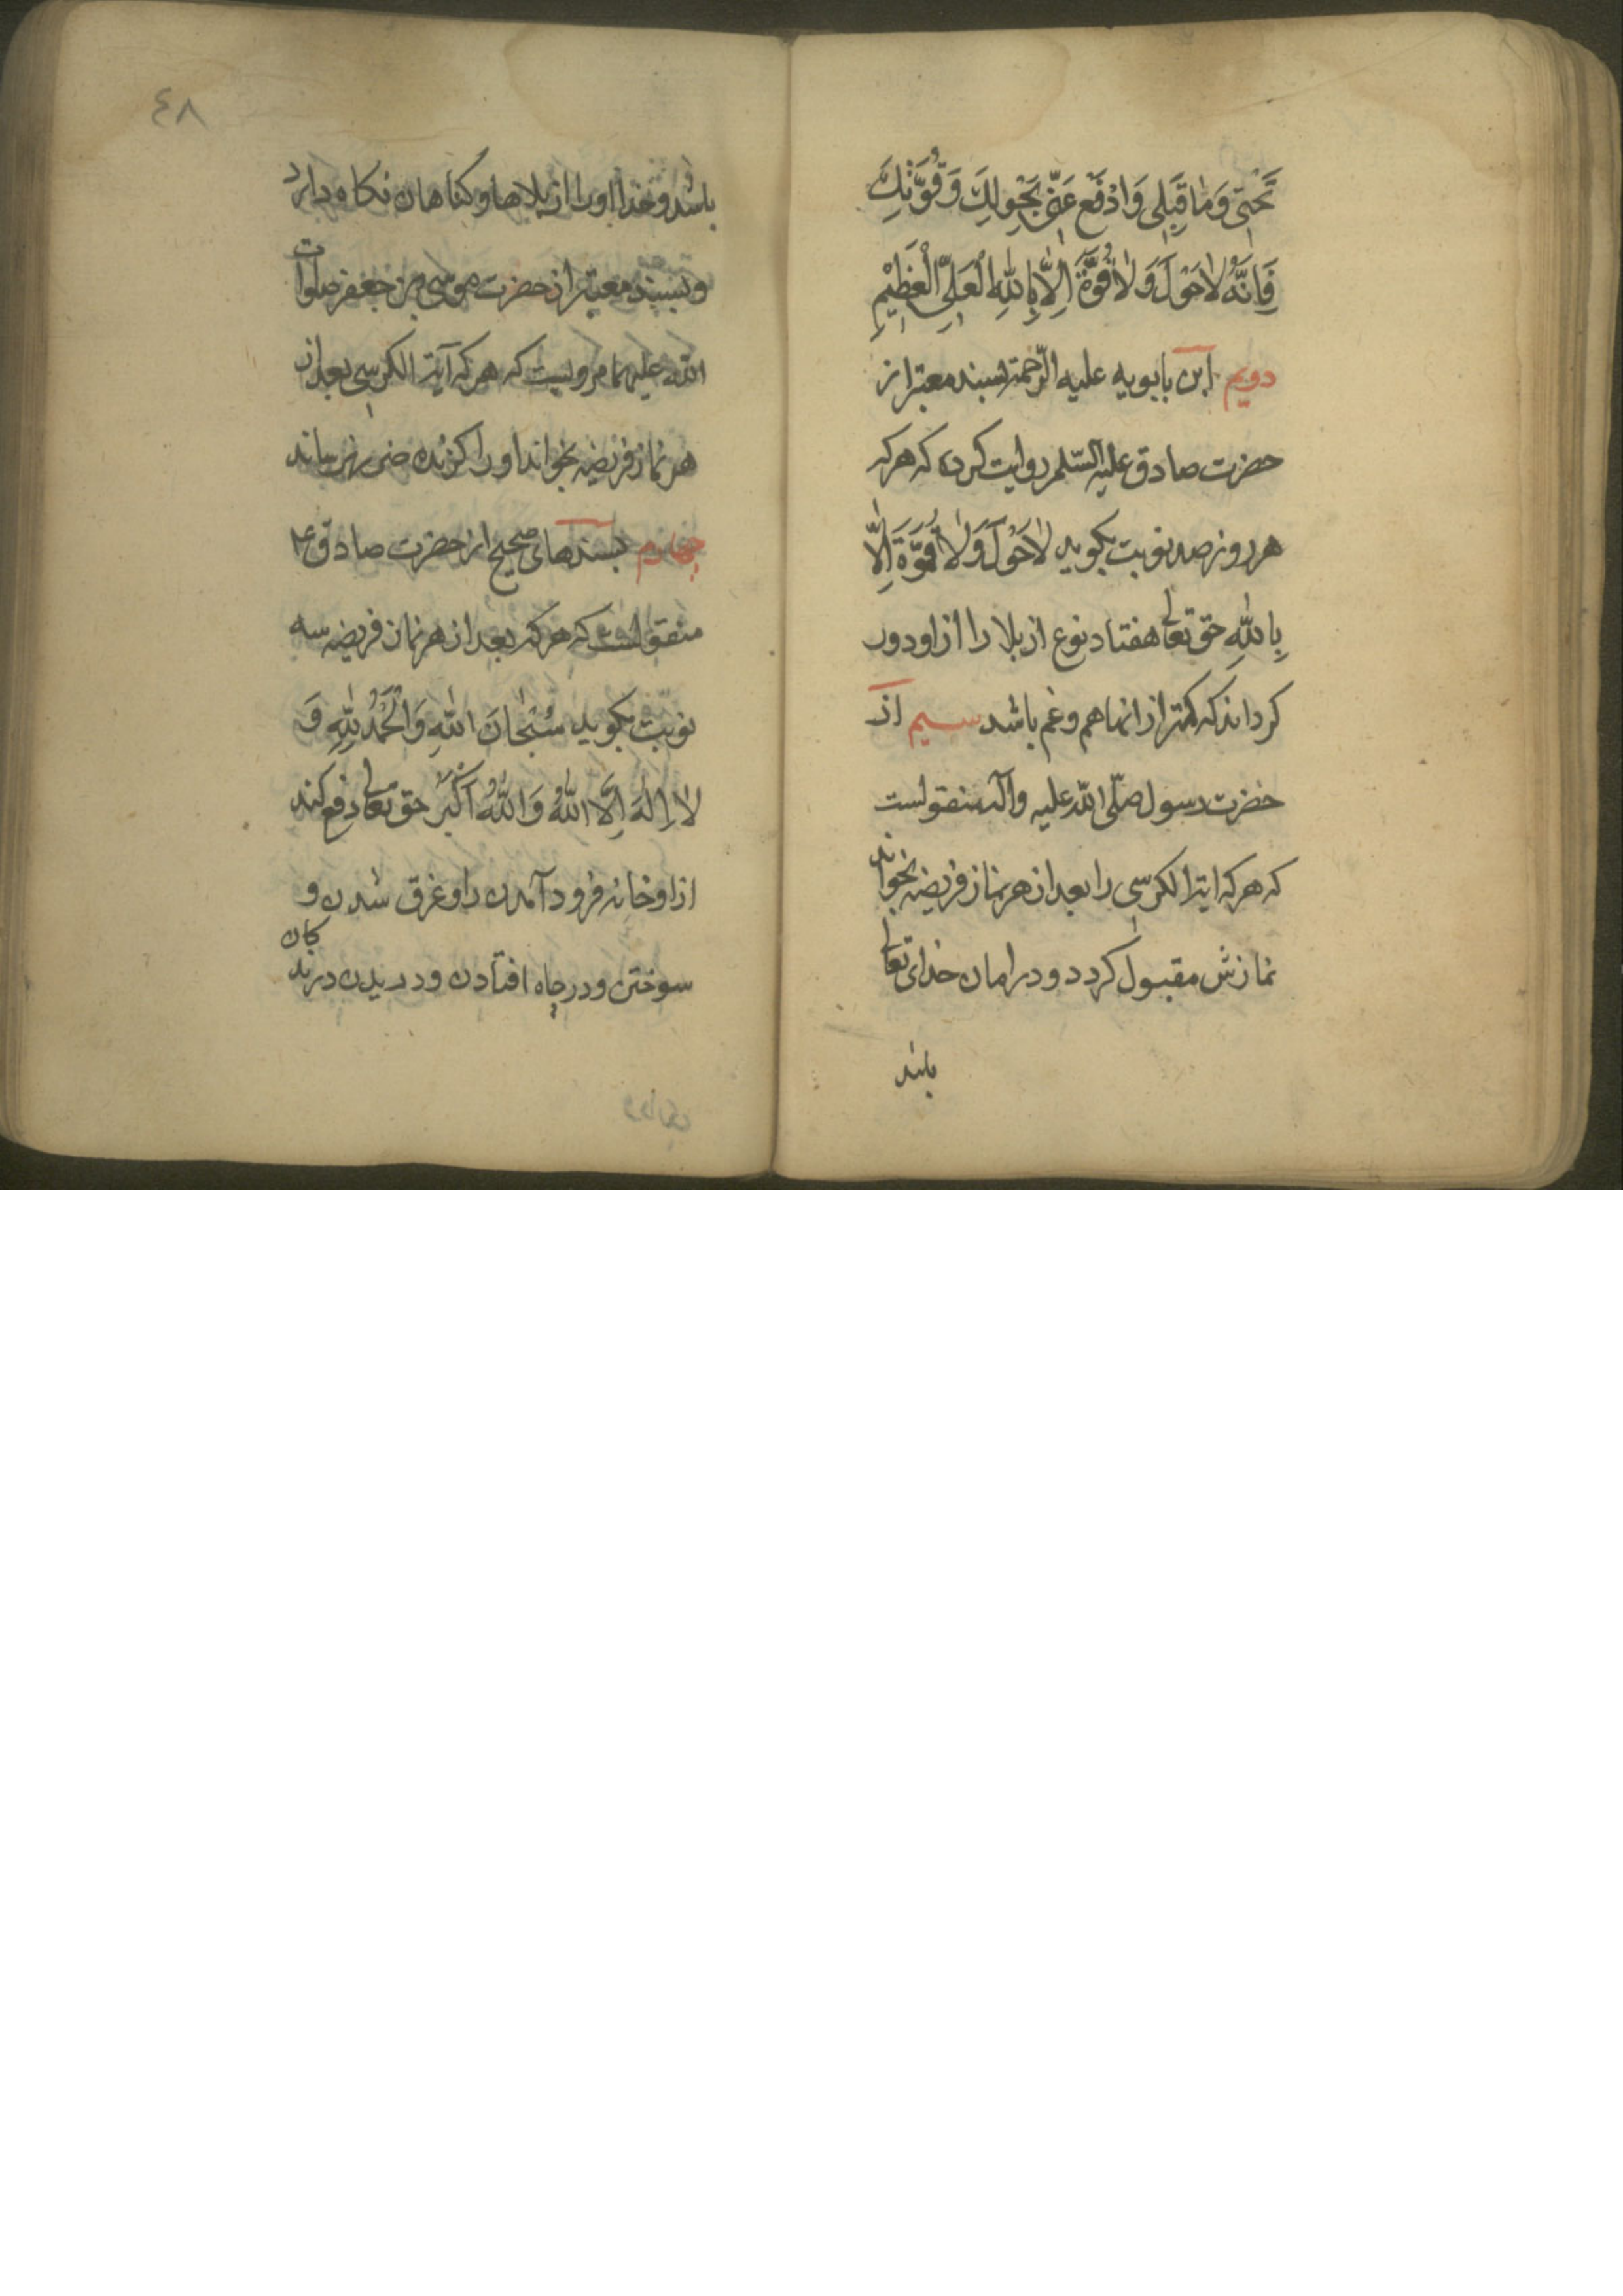 تَحْتِی وَمٰا قِبَلِی وَادْفَعْ عَنِّی بِحَوْلِكَ وَقُوَّتِكَ
فَاِنَّهُ لاٰحَوْلَ وَلاٰقُوَّةَ اِلّاٰ بِاللّٰهِ الْعَلِیِّ الْعَظِیْمِ
دویم ابن بابویه علیه الرّحمة بسند معتبر از
حضرت صادق علیه السّلم روایت کرده که هرکه
هر روز صد نوبت بکوید لاٰحَوْلَ وَلاٰقُوَّةَ اِلّاٰ
بِاللّٰهِ حق تعالی هفتاد نوع از بلا را از او دور
کرداند که کمتر از انها هم و غم باشد سیم از
حضرت رسول صلّی اللّه علیه وآله منقولست
که هرکه ایة الکرسی را بعد از هر نماز فریضه بخواند
نمازش مقبول کردد و در امان خدای تعالی
باشد
٤٨
باشد و خدا او را از بلاها و کناهان نکاه دارد
و بسند معتبر از حضرت موسی بن جعفر صلوات
اللّه علیهما مرویست که هرکه آیة الکرسی بعد از
هر نماز فریضه بخواند او را کزنده ضرر نرساند
چهارم بسندهای صحیح از حضرت صادق ع
منقولست که هرکه بعد از هر نماز فریضه سه
نوبت بکوید سُبْحٰانَ اللّٰهِ وَالْحَمْدُ لِلّٰهِ وَ
لاٰاِلٰهَ اِلَّا اللّٰهُ وَاللّٰهُ اَکْبَرُ حق تعالی دفع کند
از او خانه فرود آمدن را و غرق شدن و
سوختن و در چاه افتادن و دریدن درندکان